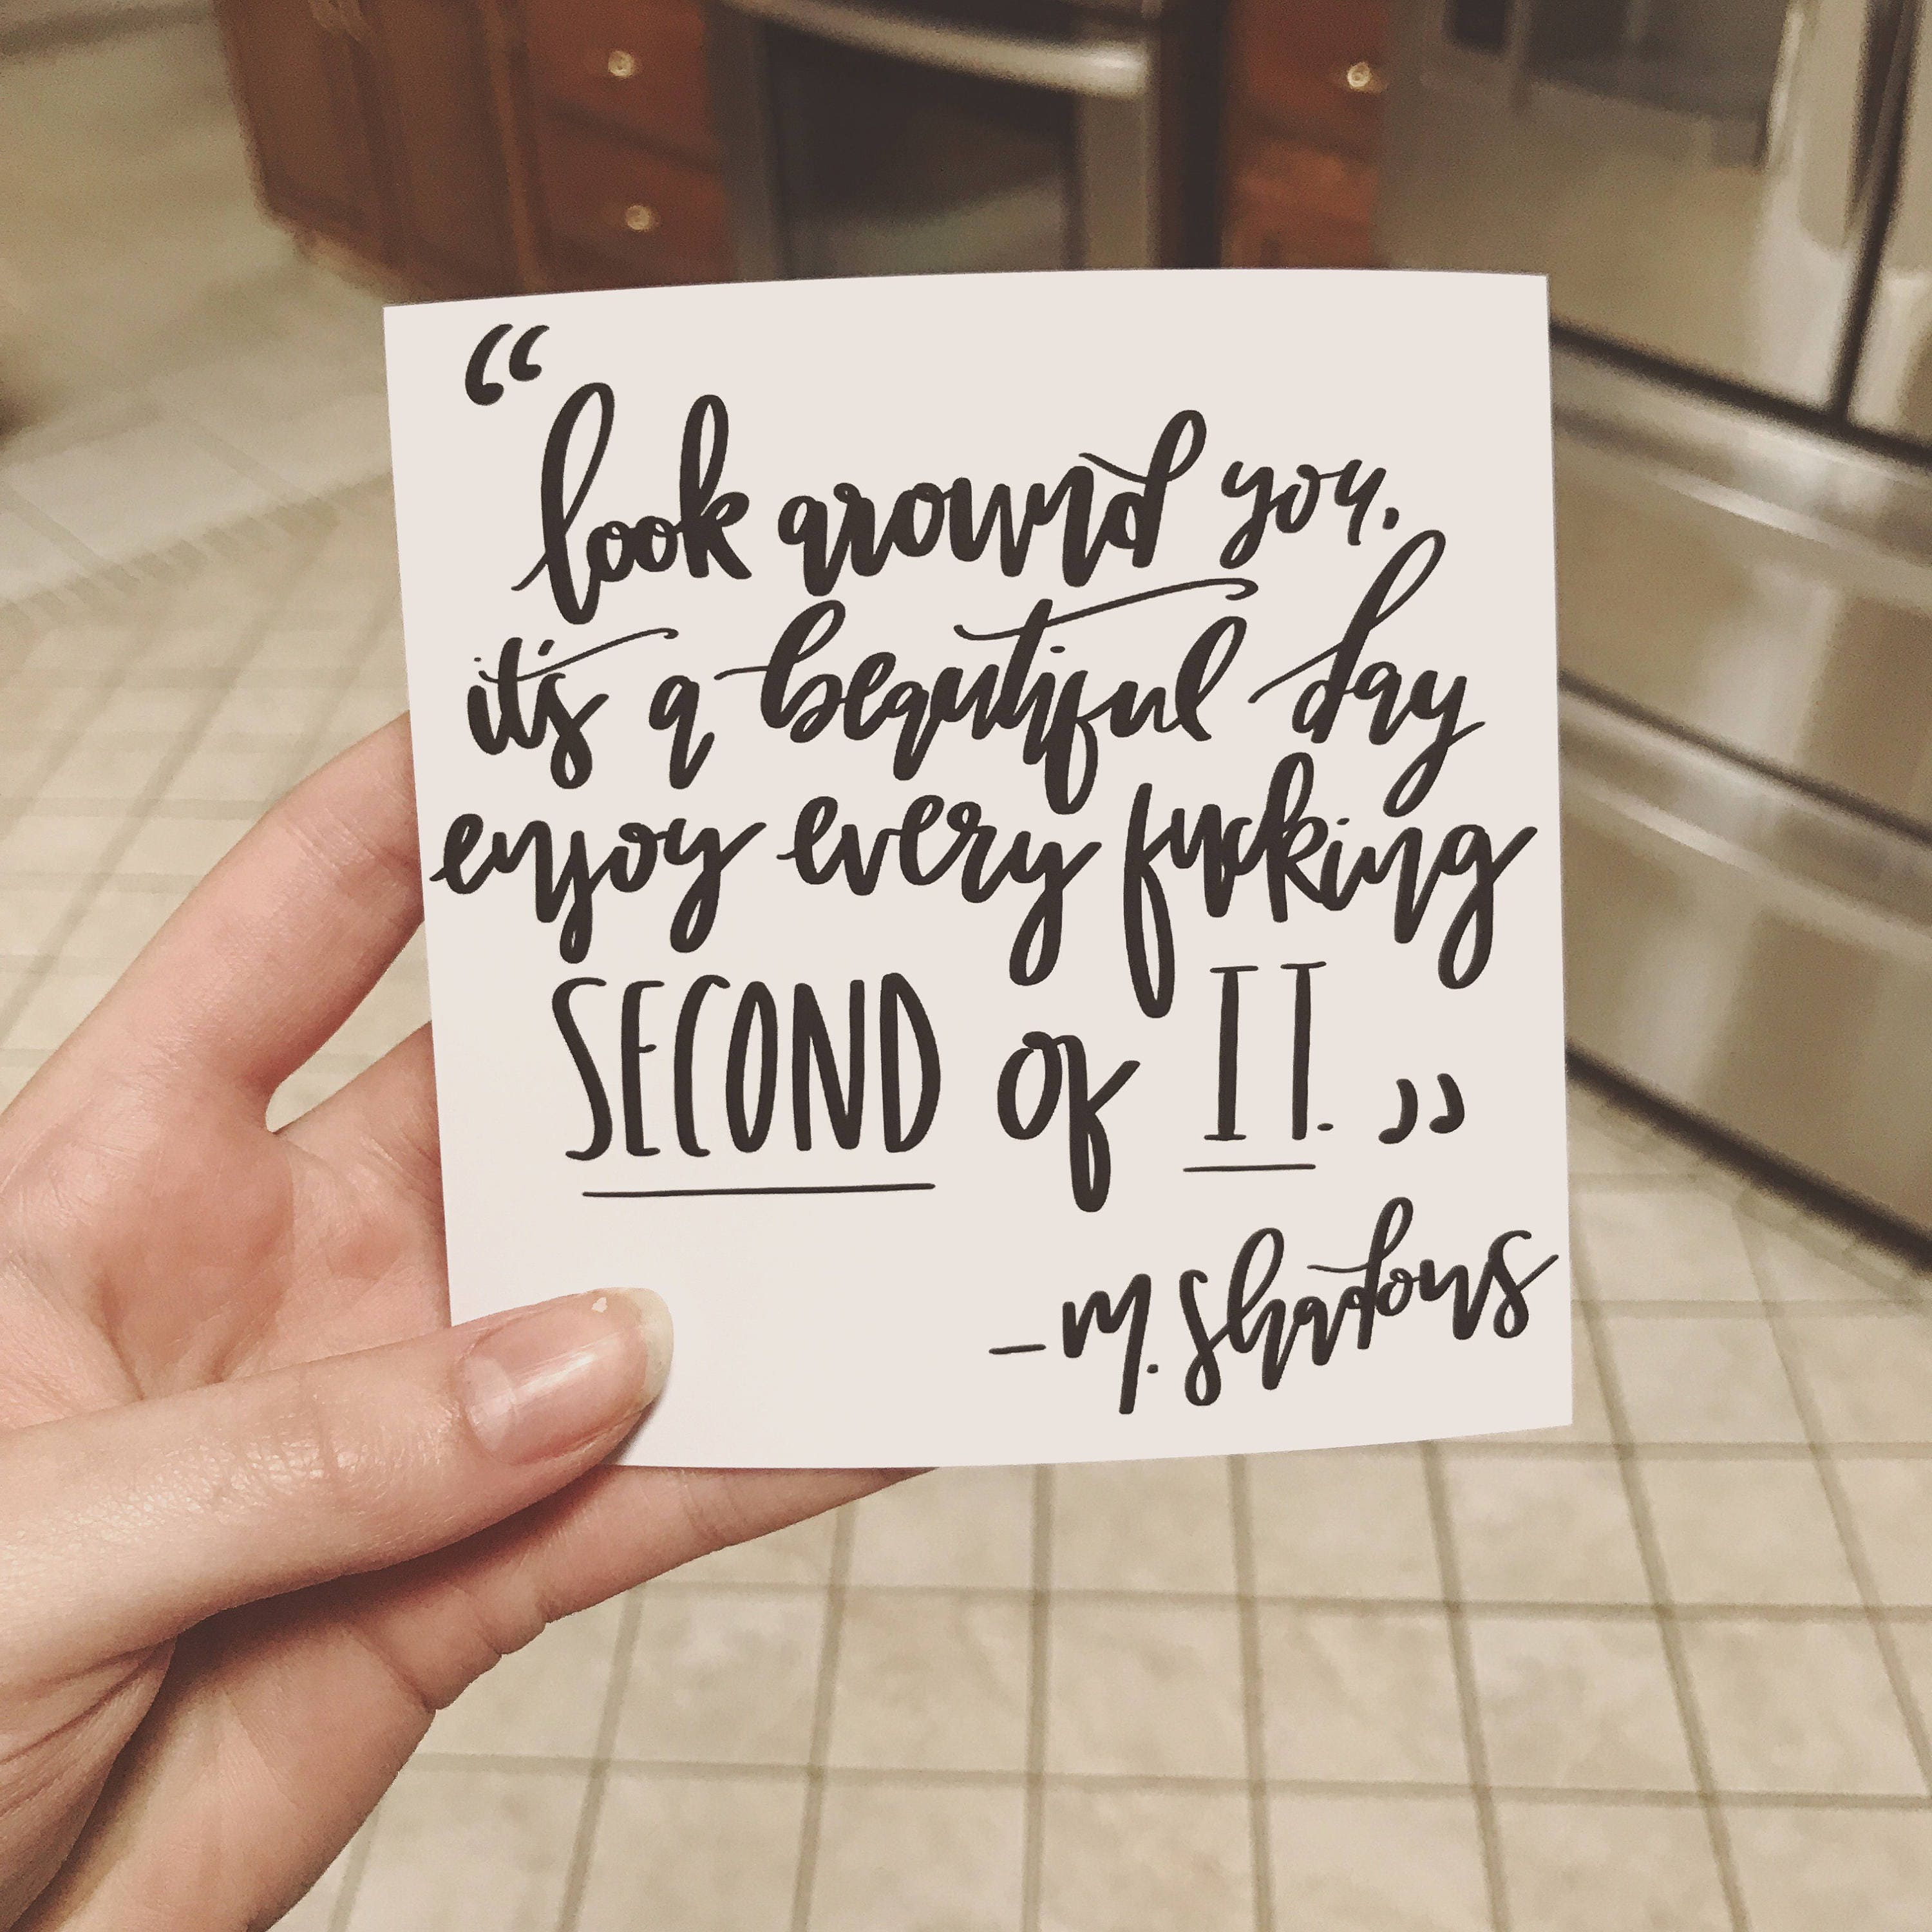 “look around you,
it's a beautiful day
enjoy every fucking
SECOND of IT.”
-M. Shadows